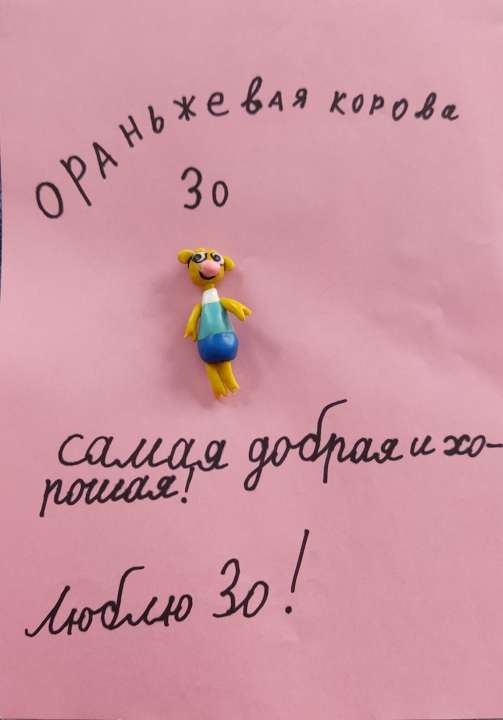 ОРАНЬЖЕВАЯ КОРОВА
Зо
самая добрая и хо-
рошая!
люблю Зо!